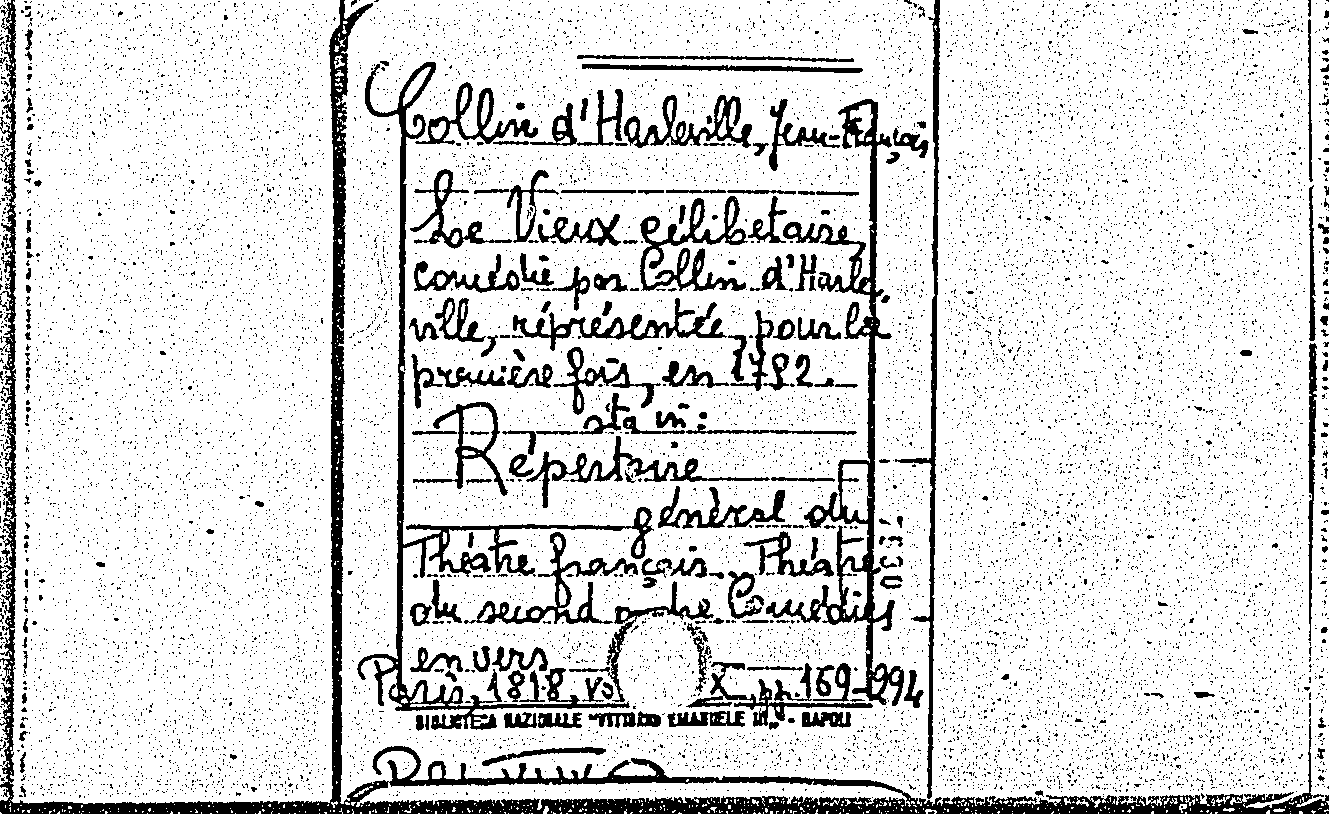 Collin d'Harleville, Jean-François
Le Vieux célibetaire,
comédie par Collin d'Harle-
ville, réprésentée, pour la
première fois, en 1792.
sta in:
Répertoire
général du
Théatre français. Théatre
du second ordre Comédies
en vers
Paris, 1818, X, pp. 169-294
BIBLIOTECA NAZIONALE "VITTORIO EMANUELE III" - NAPOLI